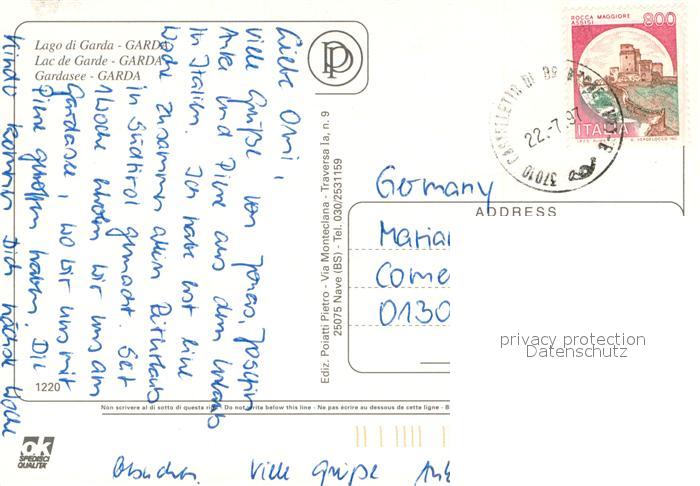 Lago di Garda - GARDA
Lac de Garde - GARDA
Gardasee - GARDA
Liebe Omi,
viele Grüße von Jonas, Joschim
Anke und Pine aus dem Urlaub
in Italien. Ich habe erst eine
Woche zusammen allein Reiturlaub
in Südtirol gemacht. Seit
1 Woche erholen wir uns am
Gardasee, wo wir uns mit
Pine getroffen haben. Die
Kinder kommen Dich nächste Woche
besuchen. Viele Grüße
1220
Ediz. Poiatti Pietro - Via Monteclana - Traversa Ia, n. 9
25075 Nave (BS) - Tel. 030/2531159
ROCCA MAGGIORE
ASSISI
800
ITALIA
37010
22.-7.97
Germany
ADDRESS
0130
privacy protection
Datenschutz
Non scrivere al di sotto di questa riga - Do not write below this line - Ne pas écrire au dessous de cette ligne - B
ok
SPEDISCI
QUALITÀ